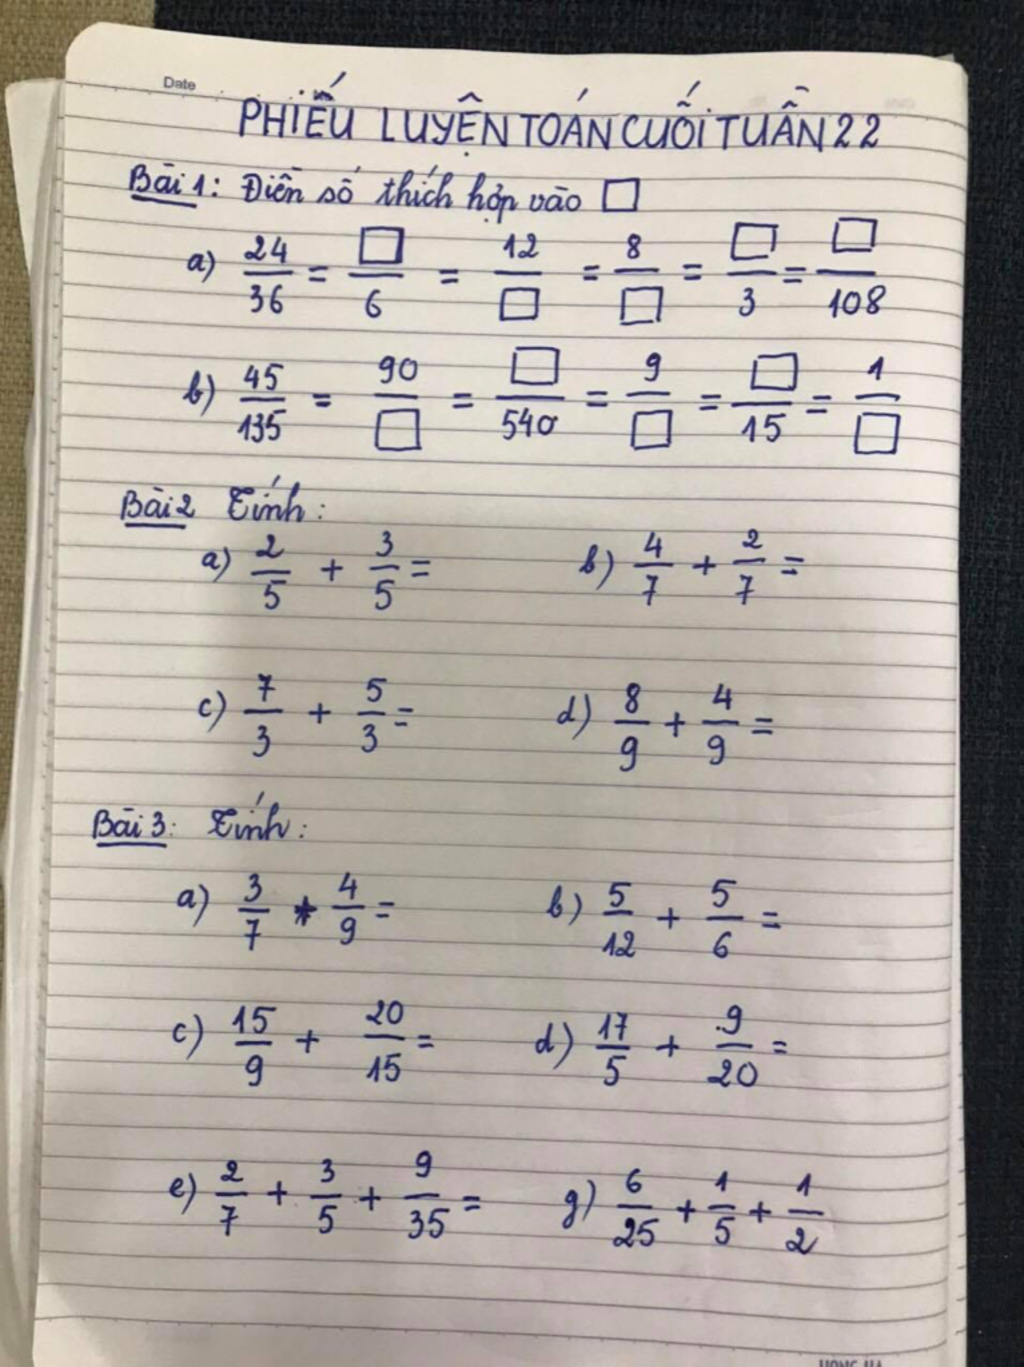 Date
PHIẾU LUYỆN TOÁN CUỐI TUẦN 22
Bài 1: Điền số thích hợp vào □
a) 24/36 = □/6 = 12/□ = 8/□ = □/3 = □/108
b) 45/135 = 90/□ = □/540 = 9/□ = □/15 = 1/□
Bài 2 Tính:
a) 2/5 + 3/5 = b) 4/7 + 2/7 =
c) 7/3 + 5/3 = d) 8/9 + 4/9 =
Bài 3: Tính:
a) 3/7 + 4/9 = b) 5/12 + 5/6 =
c) 15/9 + 20/15 = d) 17/5 + 9/20 =
e) 2/7 + 3/5 + 9/35 = g) 6/25 + 1/5 + 1/2